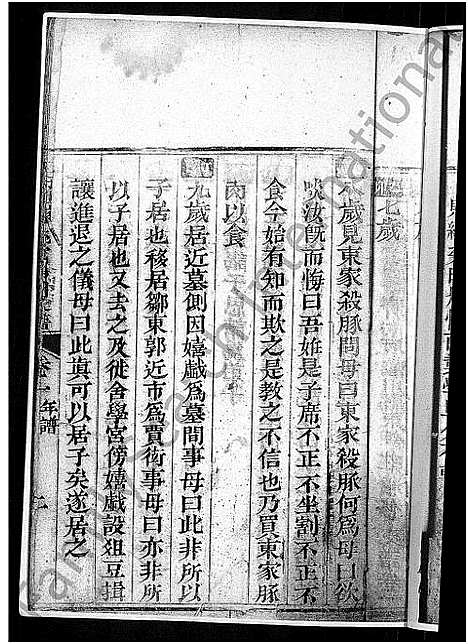 七歲
八歲見東家殺豚問母曰東家殺豚何為母曰欲
啖汝旣而悔曰吾姙是子席不正不坐割不正不
食今始有知而欺之是教之不信也乃買東家豚
肉以食
九歲居近墓側因嬉戲爲墓間事母曰此非所以
子居也移居鄒東郭近市爲賈衒事母曰亦非所
以子居也又去之及徙舍學宮傍嬉戲設俎豆揖
讓進退之儀母曰此眞可以居子矣遂居之
卷一 年譜 二